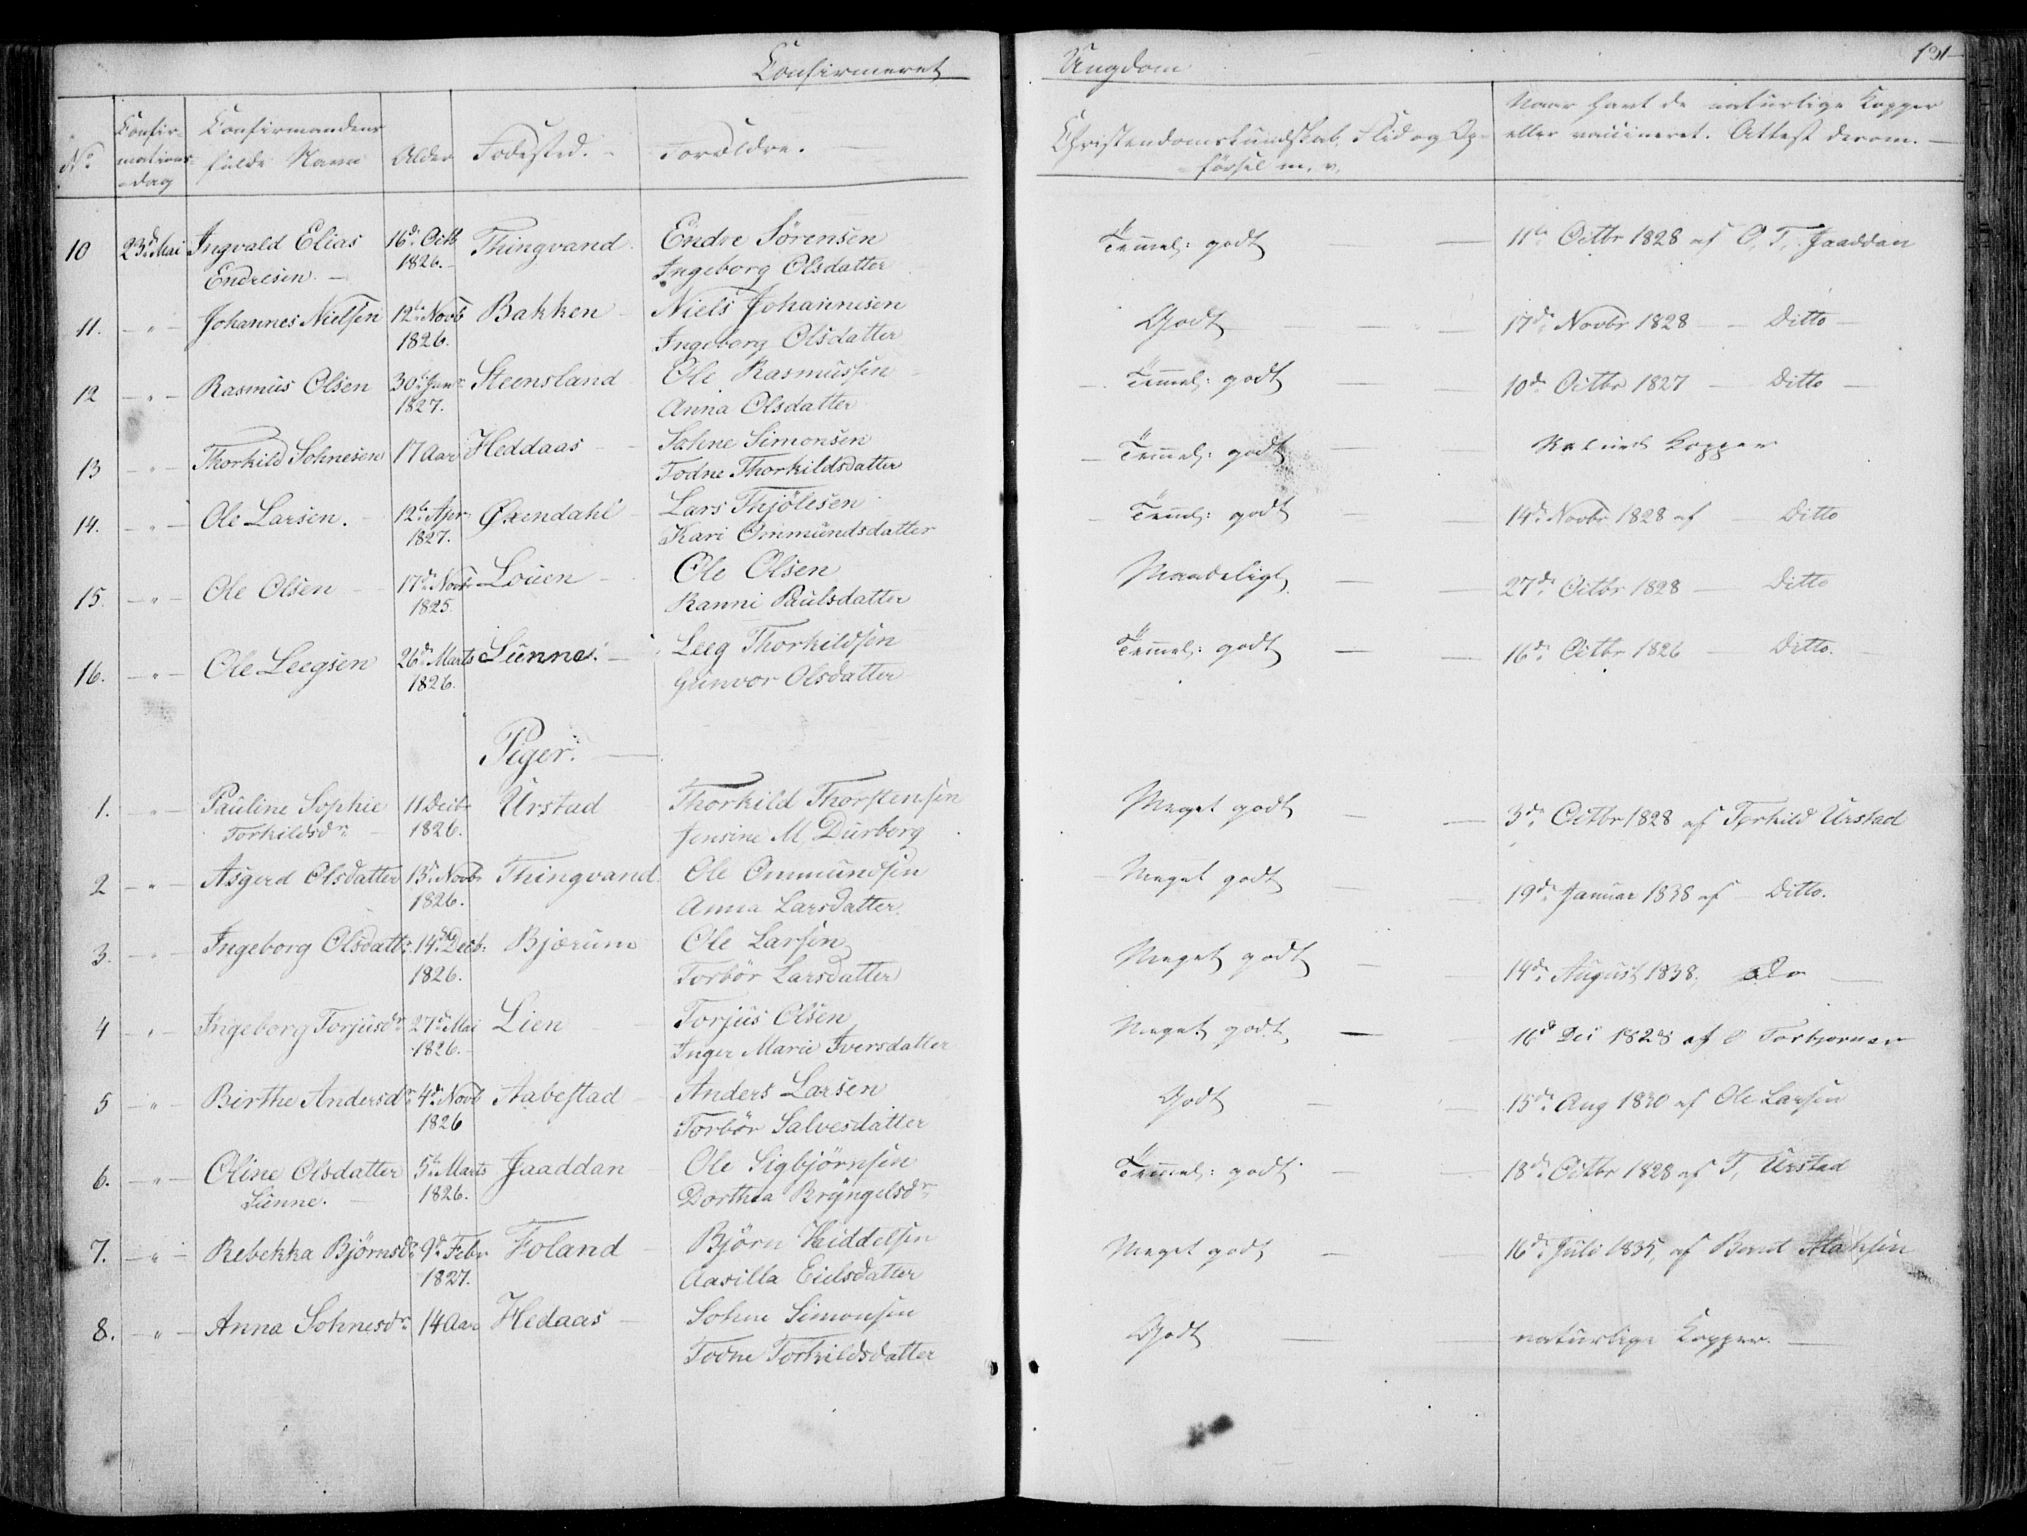 Confirmeret Ungdom 131
No
Confir-
mations-
dag
Confirmandens
fulde Navn
Alder
Fødested.
Forældre.
Christendomskundskab, Flid og Op-
førsel m. v.
Naar havt de naturlige Kopper
eller vaccineret. Attest derom.
10 23d Mai Ingvald Elias 16d Octb Thingvand. Endre Sørensen Temmel: godt 11te Octbr 1828 af O. T. Jaaddan
Endresen. 1826. Ingeborg Olsdatter
11. " Johannes Nielsen 12te Novb Bakken Niels Johannesen Godt 17d Novbr 1828 Ditto
1826. Ingeborg Olsdatter
12 " Rasmus Olsen 30te Janr Steensland Ole Rasmussen Temmel: godt 10d Octbr 1827 Ditto
1827. Anna Olsdatter
13 " Thorkild Sohnesen 17 Aar Heddaas Sohne Simonsen Temmel: godt Kopper
Todne Thorkildsdatter
14. " Ole Larsen. 12te Apr. Øxendahl Lars Thjølesen Temmel: godt 14d Novbr 1828 af Ditto
1827. Kari Ommundsdatter
15. " Ole Olsen 17d Novbr Louen Ole Olsen Maadeligt 27d Octbr 1828 Ditto
1825. Ranni Paulsdatter
16. " Ole Leegsen 26d Marts Sunne. Leeg Thorkildsen Temmel: godt 16d Octbr 1826 Ditto.
1826. Gunvor Olsdatter
Piger.
1. " Pauline Sophie 11 Decbr Urstad Thorkild Thorstensen Meget godt 3d Octbr 1828 af Torkild Urstad
Torkildsdr. 1826. Jensine M. Durborg
2 " Asgerd Olsdatter 13d Novbr Thingvand Ole Ommundsen Meget godt 19d Januar 1838 af Ditto.
1826. Anna Larsdatter.
3. " Ingeborg Olsdattr. 14de Decb. Bjærum Ole Larsen Meget godt 14d August 1838. Do
1826. Torbør Larsdatter
4 " Ingeborg Torjusdr. 27d Mai Lien Torjus Olsen Meget godt 16d Dec 1828 af O Torbjørnsen
1826. Inger Marie Iversdatter
5 " Birthe Andersdr. 4d Novb Aabestad Anders Larsen Godt 15d Aug 1830 af Ole Larsen
1826 Torbør Salvesdatter
6. " Oline Olsdatter 5te Marts Jaaddan Ole Sigbjørnsen Temmel: godt 18d Octbr 1828 af T. Urstad
Sunne. 1826. Dorthea Bryngelsdr.
7. " Rebekka Bjørnsdr 9d Febr Foland Bjørn Hiddelsen Meget godt 16d Juli 1835, af Bernt
1827. Aasilla Eielsdatter
8. " Anna Sohnesdr. 14 Aar Hedaas Sohne Simonsen Godt naturlige Kopper.
Todne Torkildsdatter